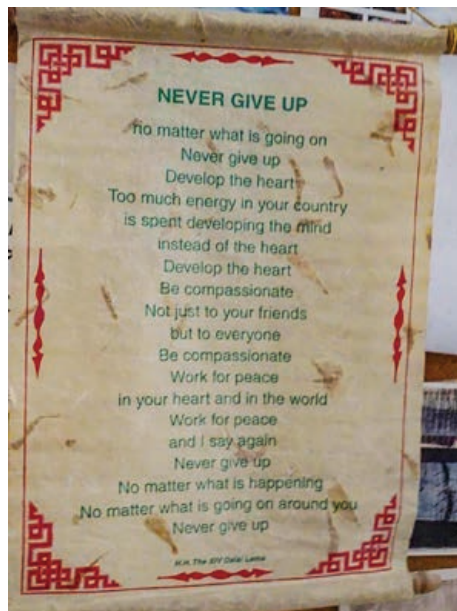 NEVER GIVE UP
no matter what is going on
Never give up
Develop the heart
Too much energy in your country
is spent developing the mind
instead of the heart
Develop the heart
Be compassionate
Not just to your friends
but to everyone
Be compassionate
Work for peace
in your heart and in the world
Work for peace
and I say again
Never give up
No matter what is happening
No matter what is going on around you
Never give up
H.H. The XIV Dalai Lama